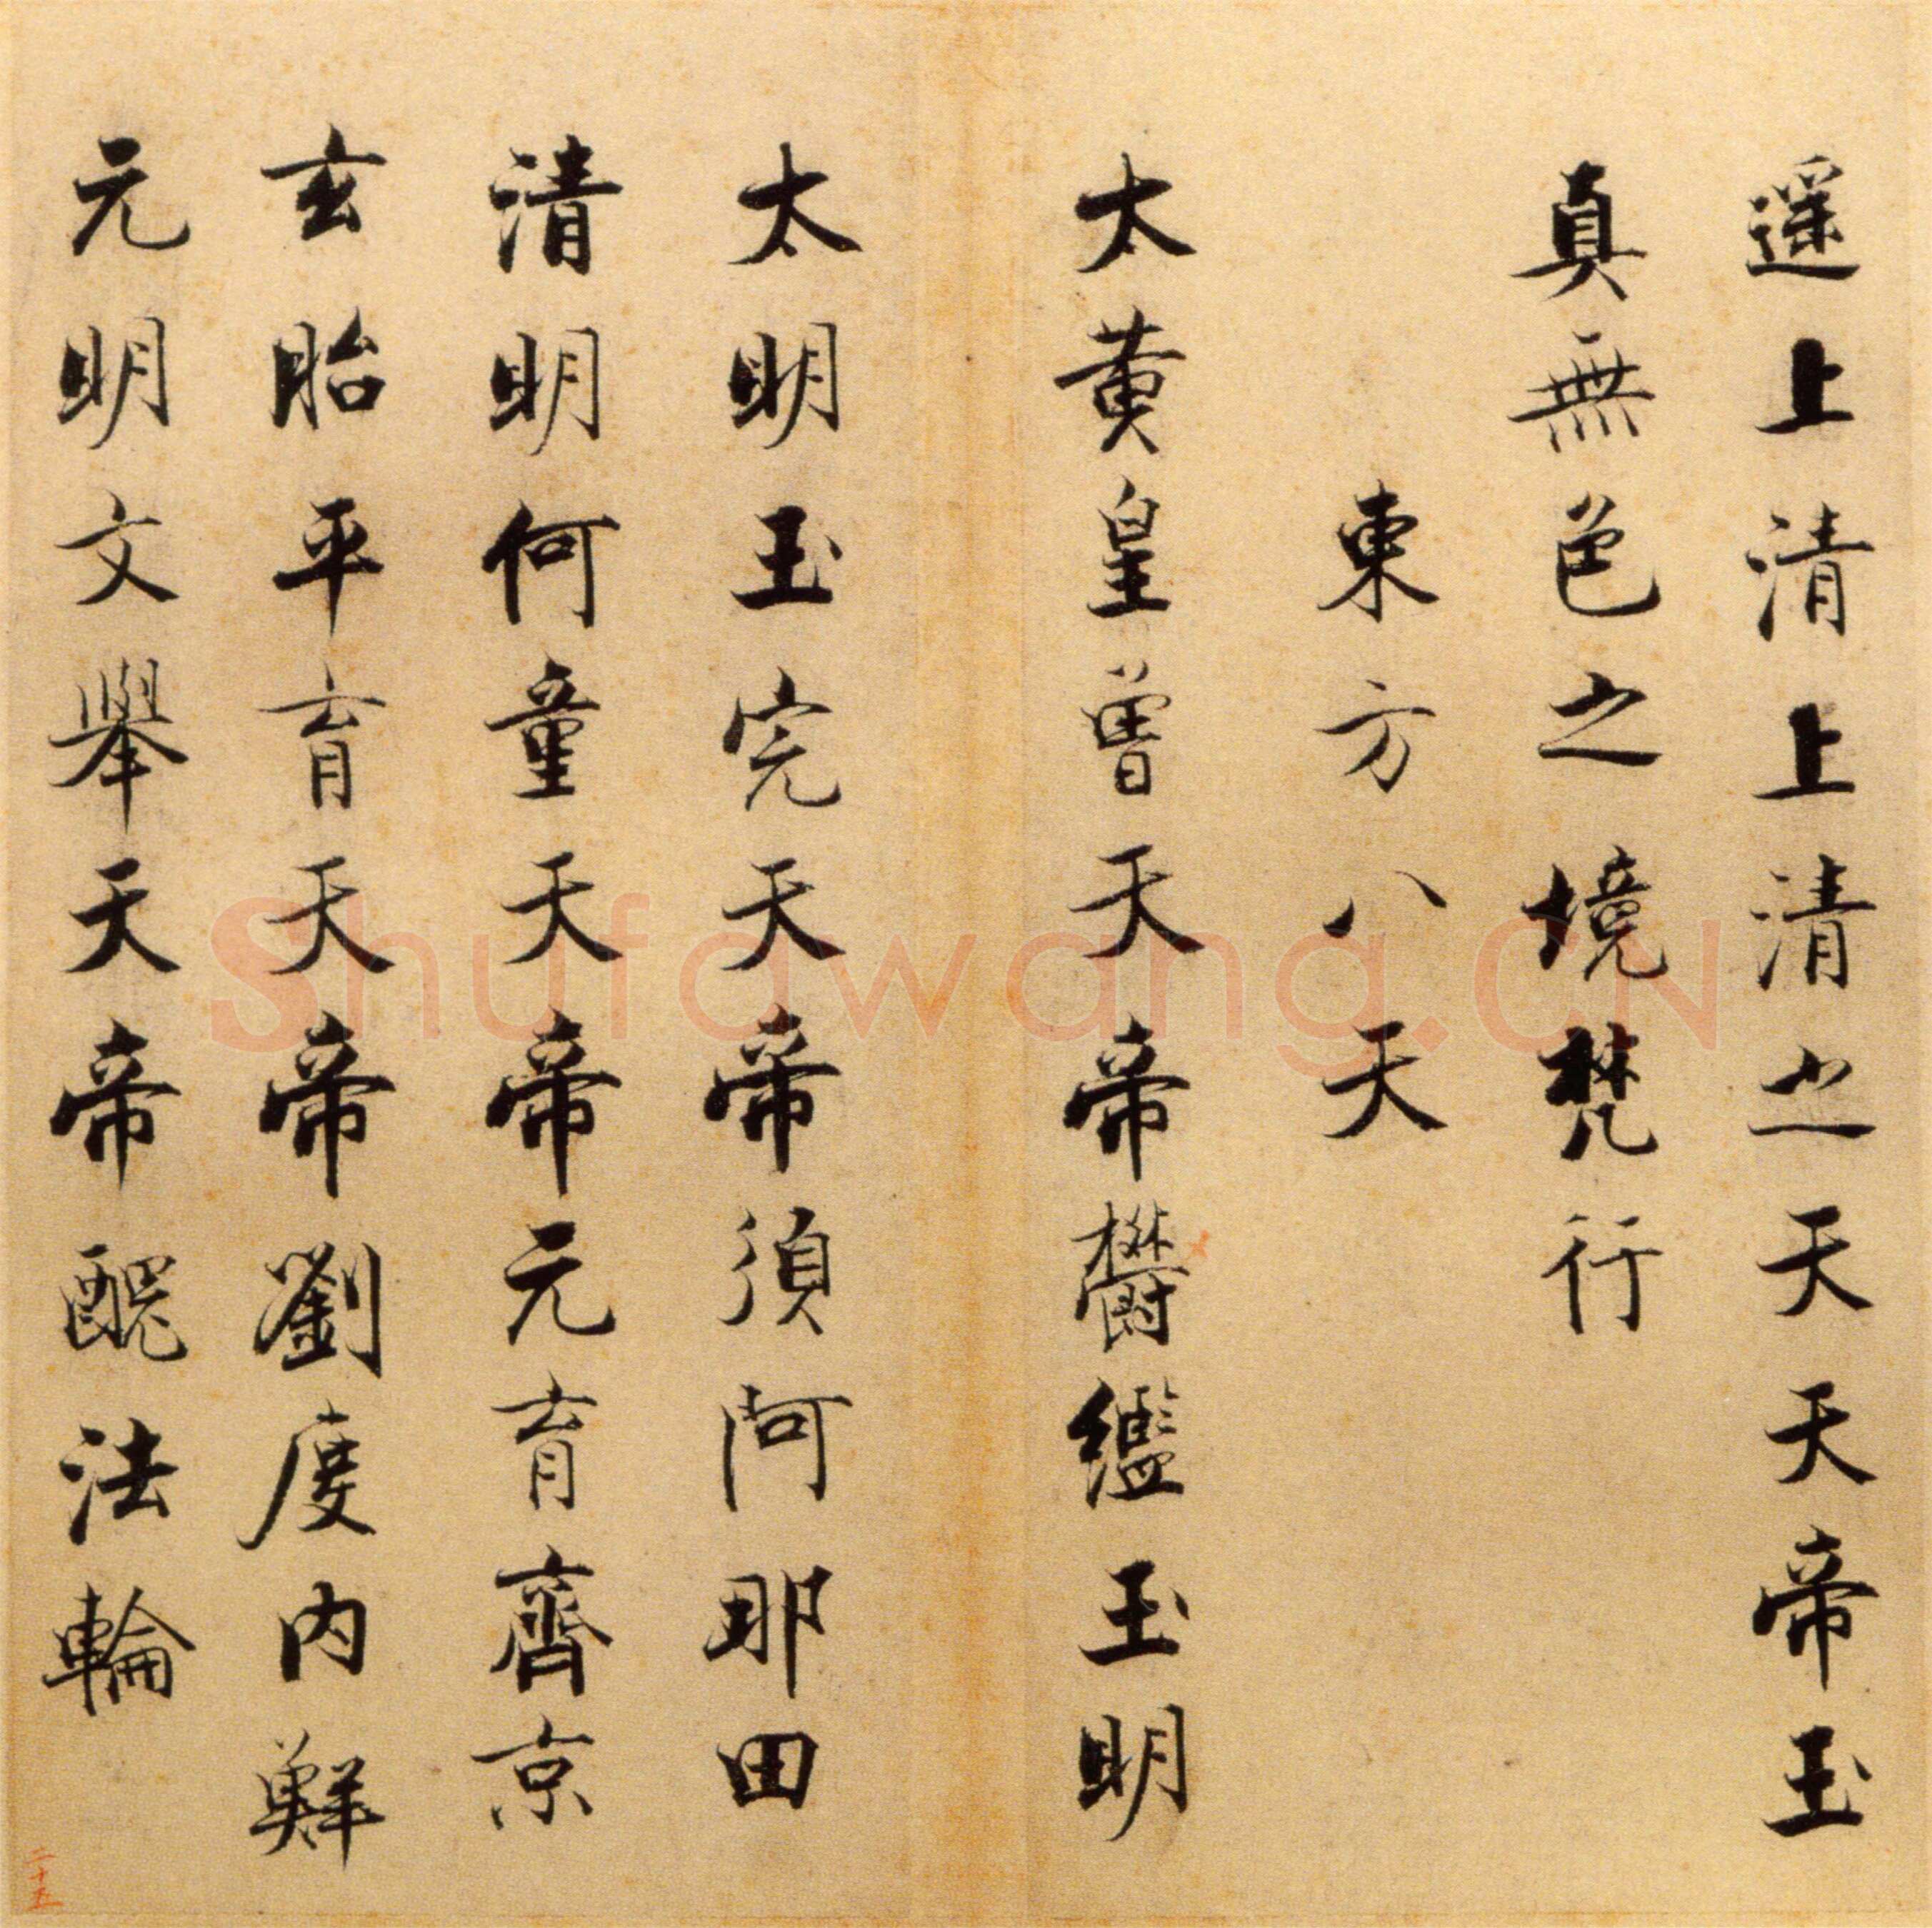 遥上清上清之天天帝玉
真無色之境梵行
東方八天
太黄皇曾天帝鬱繿玉明
太明玉完天帝須阿那田
清明何童天帝元育齊京
玄胎平育天帝劉度内鮮
元明文舉天帝醜法輪
二十五
Shufawang.CN